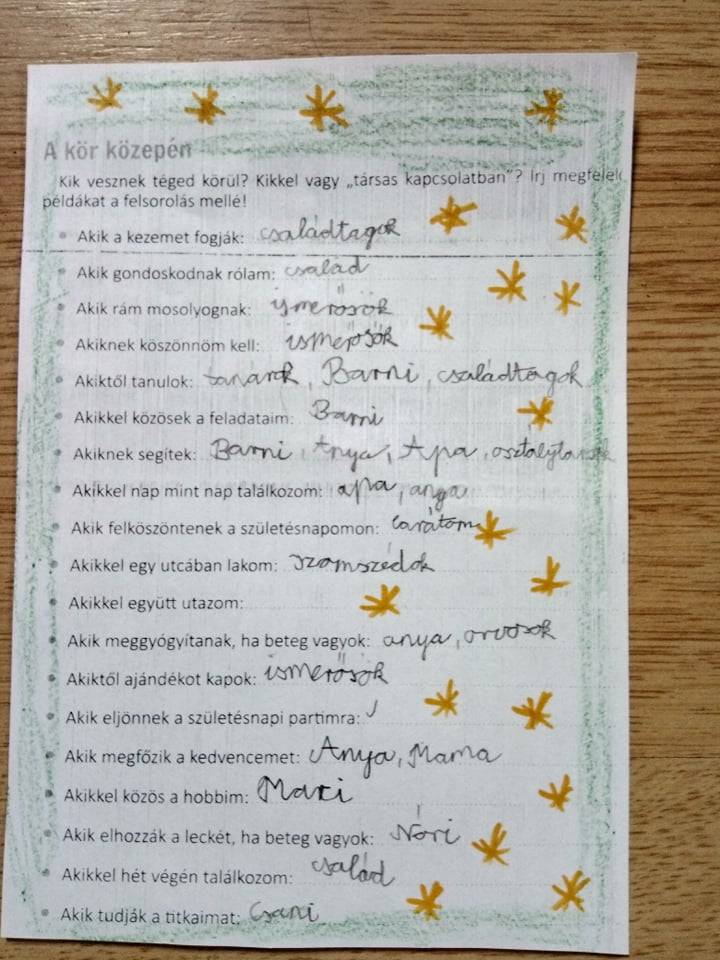 A kör közepén
Kik vesznek téged körül? Kikkel vagy „társas kapcsolatban”? Írj megfelelő
példákat a felsorolás mellé!
• Akik a kezemet fogják: családtagok
• Akik gondoskodnak rólam: család
• Akik rám mosolyognak: ismerősök
• Akiknek köszönnöm kell: ismerősök
• Akiktől tanulok: tanarok, Barni, családtagok
• Akikkel közösek a feladataim: Barni
• Akiknek segítek: Barni, Anya, Apa, osztálytarsak
• Akikkel nap mint nap találkozom: apa, anya
• Akik felköszöntenek a születésnapomon: barátom
• Akikkel egy utcában lakom: szomszédok
• Akikkel együtt utazom:
• Akik meggyógyítanak, ha beteg vagyok: anya, orvosok
• Akiktől ajándékot kapok: ismerősök
• Akik eljönnek a születésnapi partimra:
• Akik megfőzik a kedvencemet: Anya, Mama
• Akikkel közös a hobbim: Marci
• Akik elhozzák a leckét, ha beteg vagyok: Nóri
• Akikkel hét végén találkozom: család
• Akik tudják a titkaimat: Csani